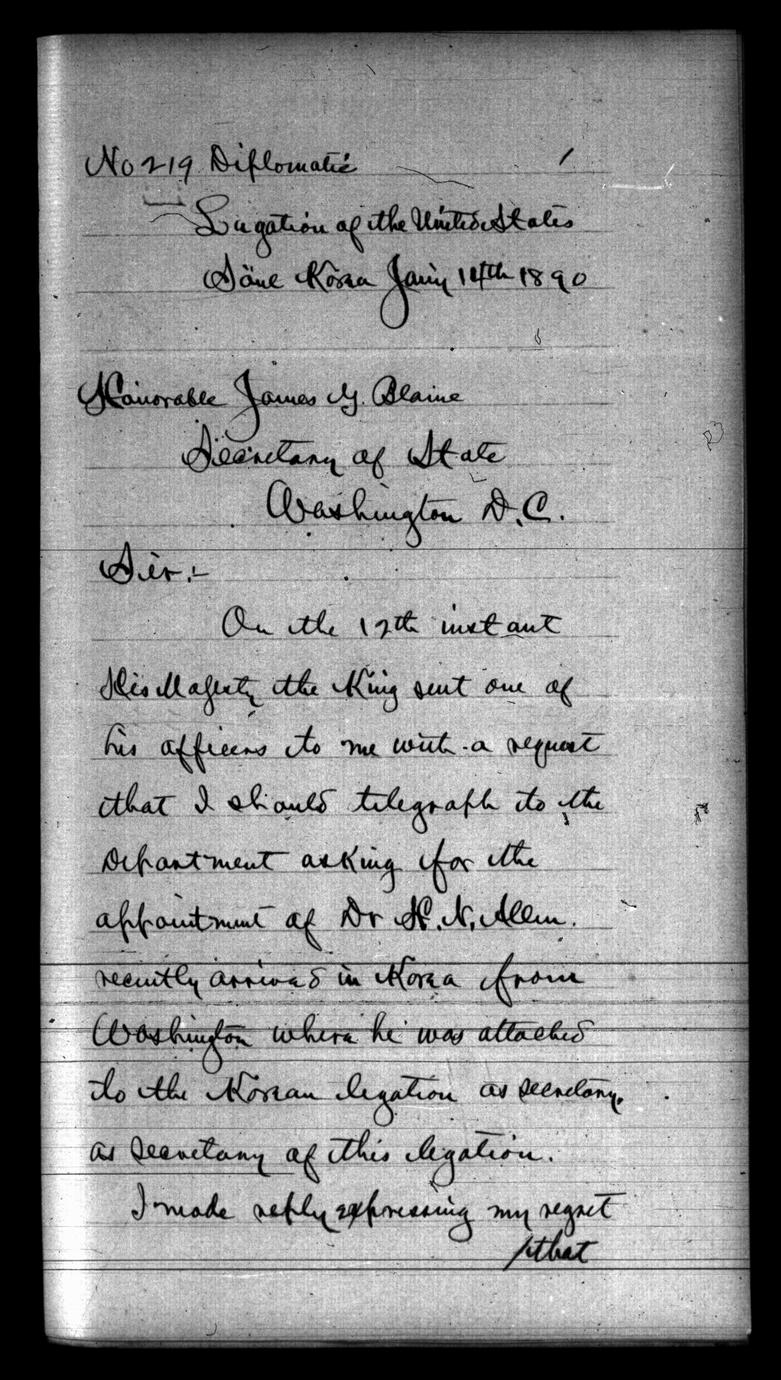 No 219 Diplomatic 1
Legation of the United States
Söul Korea Jan'y 14th 1890
Honorable James G. Blaine
Secretary of State
Washington D.C.
Sir:-
On the 12th instant
His Majesty the King sent one of
his officers to me with a request
that I should telegraph to the
Department asking for the
appointment of Dr H. N. Allen.
recently arrived in Korea from
Washington where he was attached
to the Korean legation as secretary,
as Secretary of this legation.
I made reply expressing my regret
/that